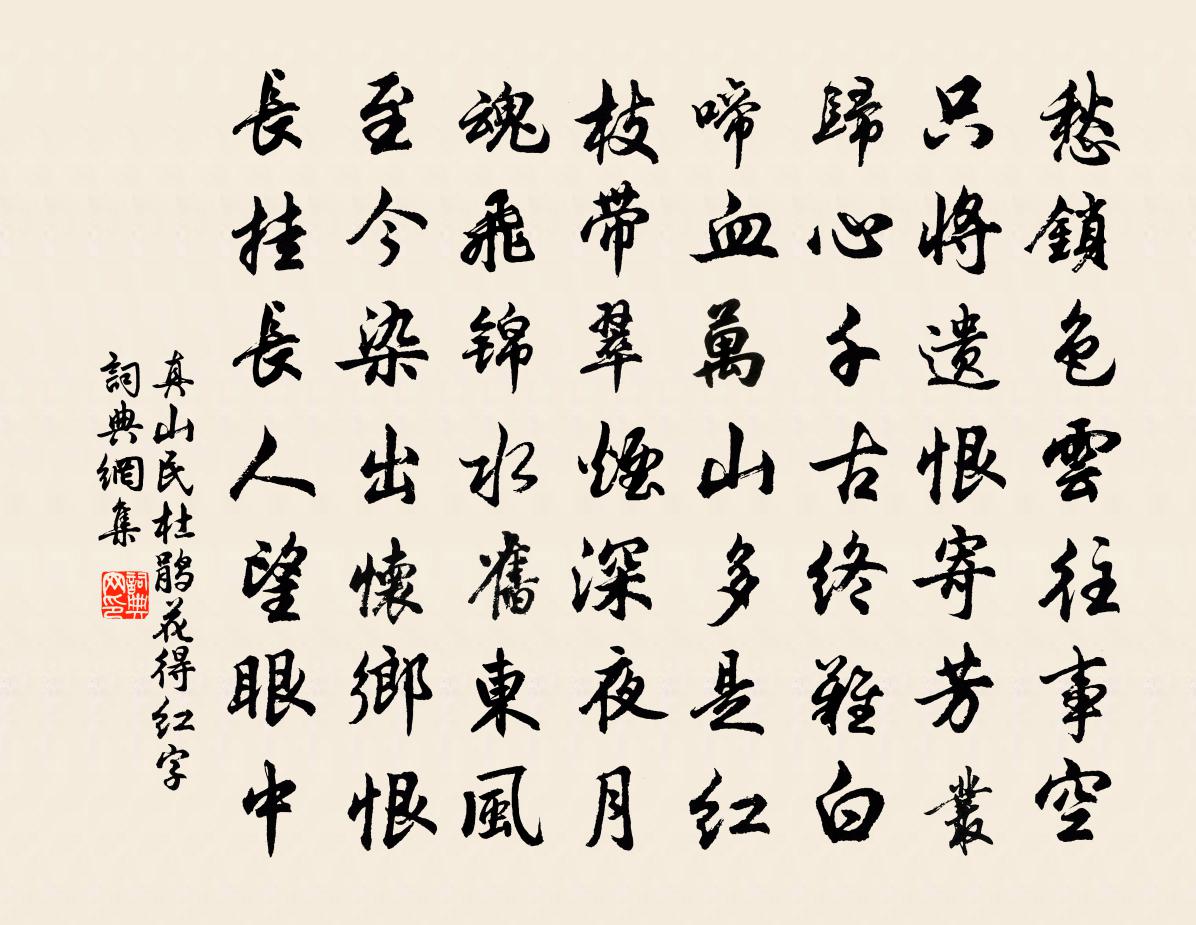 愁鎖色雲往事空
只將遺恨寄芳叢
歸心千古終難白
啼血萬山多是紅
枝帶翠煙深夜月
魂飛錦水舊東風
至今染出懷鄉恨
長挂長人望眼中
真山民杜鵑花得红字
詞典網集
詞典
网印